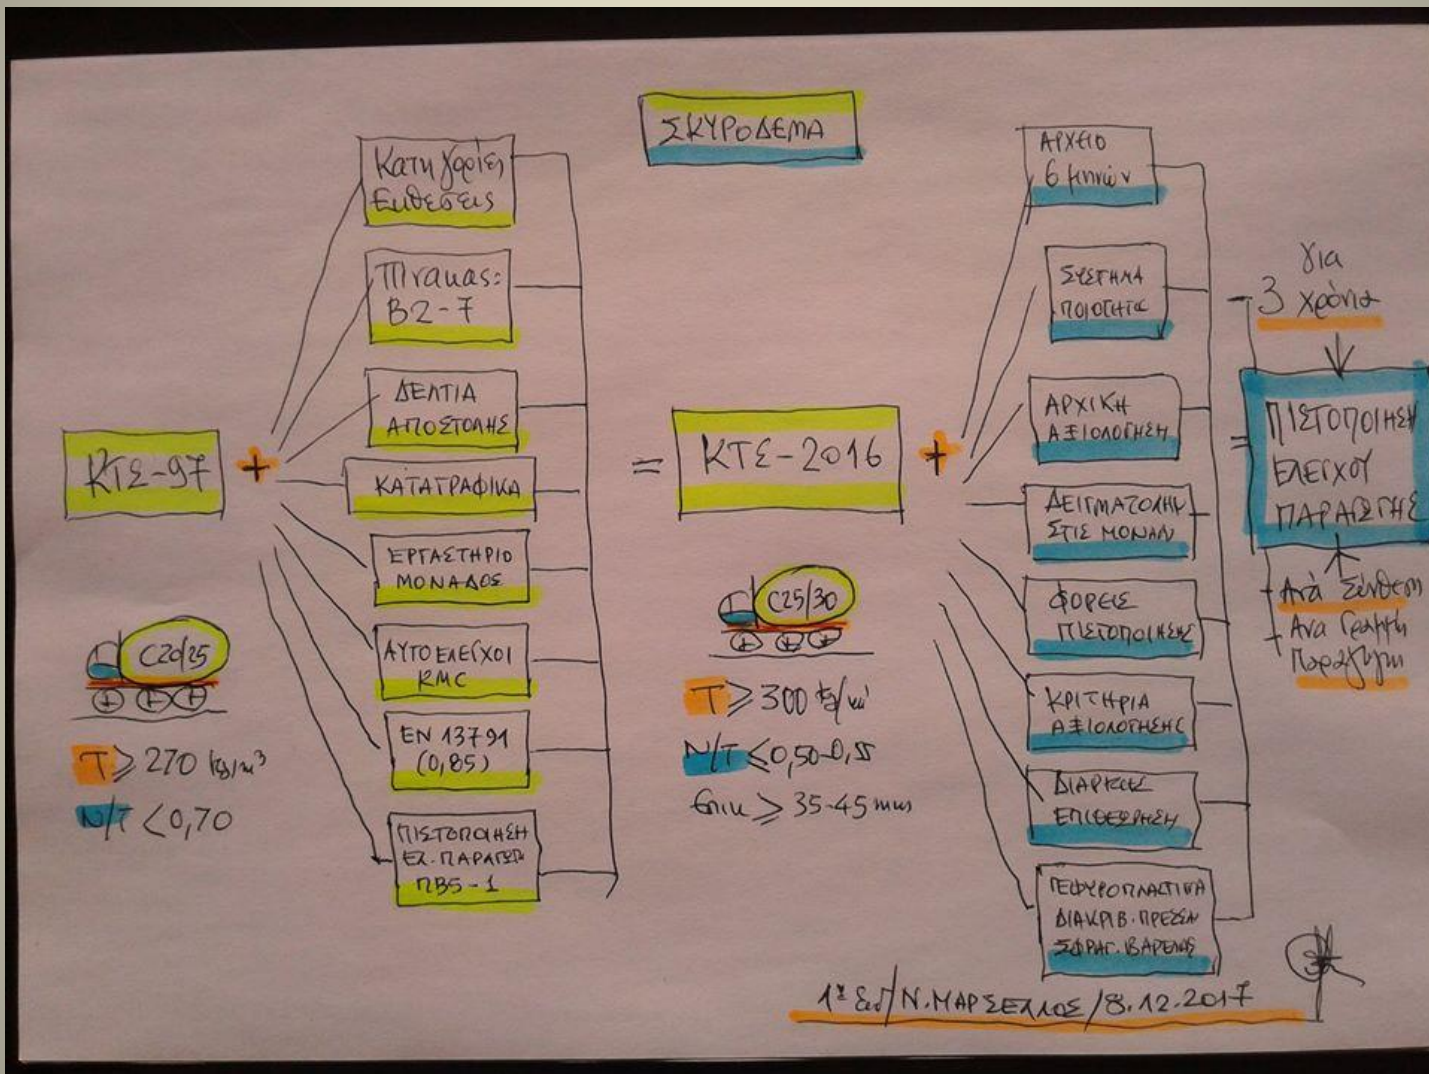 ΣΚΥΡΟΔΕΜΑ
ΚΤΣ-97
+
C20/25
T ≥ 270 kg/m³
N/T < 0,70
Κατηγορίες
Εκθέσεις
Πίνακας:
Β2-7
ΔΕΛΤΙΑ
ΑΠΟΣΤΟΛΗΣ
ΚΑΤΑΓΡΑΦΙΚΑ
ΕΡΓΑΣΤΗΡΙΟ
ΜΟΝΑΔΟΣ
ΑΥΤΟΕΛΕΓΧΟΙ
RMC
EN 13791
(0,85)
ΠΙΣΤΟΠΟΙΗΣΗ
ΕΛ. ΠΑΡΑΓΩΓ
ΠΒ5-1
=
ΚΤΣ-2016
+
C25/30
T ≥ 300 kg/m³
N/T ≤ 0,50-0,55
Επικ ≥ 35-45 mm
ΑΡΧΕΙΟ
6 μηνών
ΣΥΣΤΗΜΑ
ΠΟΙΟΤΗΤΑΣ
ΑΡΧΙΚΗ
ΑΞΙΟΛΟΓΗΣΗ
ΔΕΙΓΜΑΤΟΛΗΨ
ΣΤΙΣ ΜΟΝΑΔ
ΦΟΡΕΙΣ
ΠΙΣΤΟΠΟΙΗΣΗΣ
ΚΡΙΤΗΡΙΑ
ΑΞΙΟΛΟΓΗΣΗΣ
ΔΙΑΡΚΗΣ
ΕΠΙΘΕΩΡΗΣΗ
ΓΕΦΥΡΟΠΛΑΣΤΙΓΓΑ
ΔΙΑΚΡΙΒ. ΠΡΕΣΣΑ
ΣΦΡΑΓ. ΒΑΡΕΛΑΣ
για
3 χρόνια
=
ΠΙΣΤΟΠΟΙΗΣΗ
ΕΛΕΓΧΟΥ
ΠΑΡΑΓΩΓΗΣ
Ανά Σύνθεση
Ανα Γραμμή
Παραγωγή
Ν. ΜΑΡΣΕΛΛΟΣ / 8.12.2017